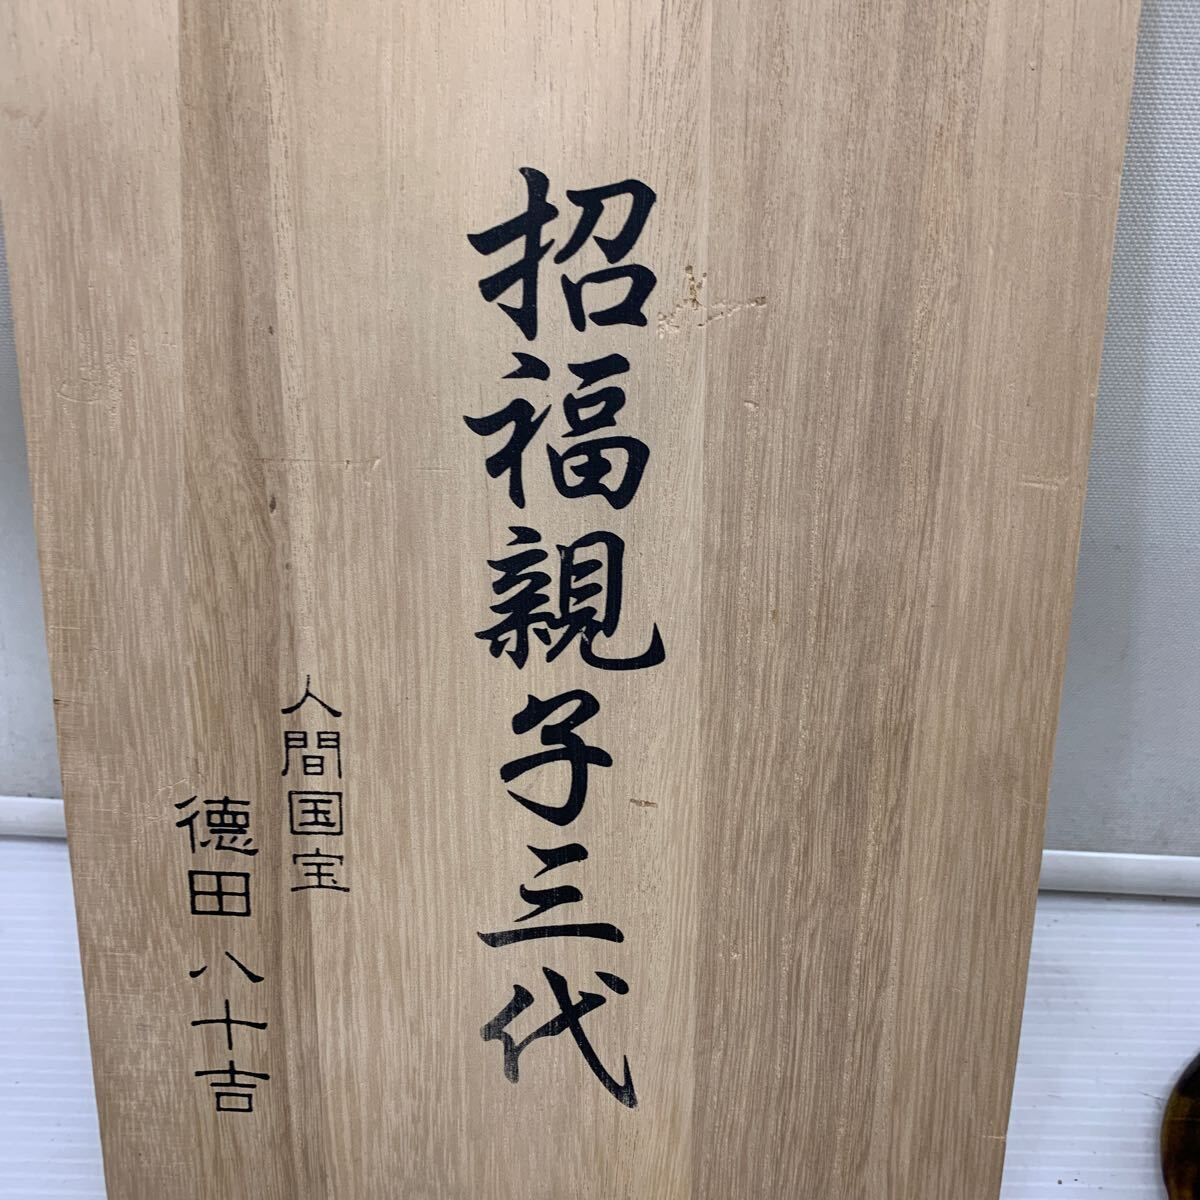 招福親子三代
人間国宝
徳田八十吉